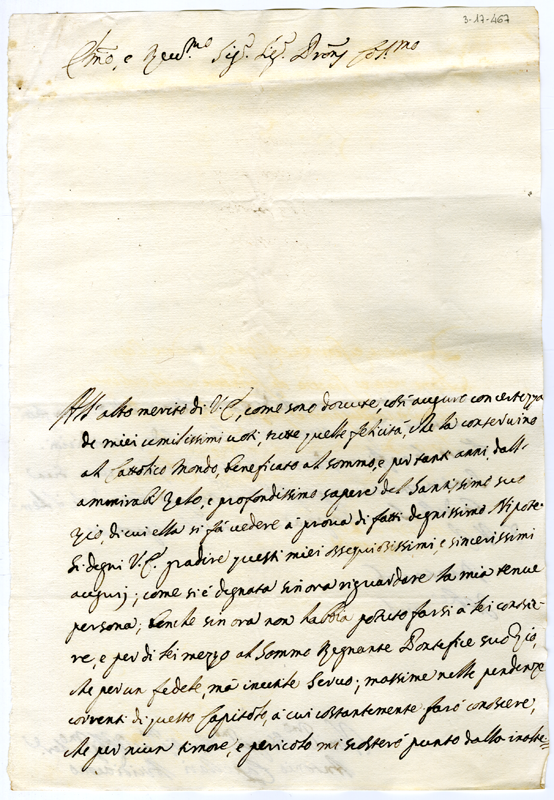 3-17-467
Emo, e Reu.mo Sig.r Sig.r Prone Col.mo
All' alto merito di V.E., come sono douute, così auguro con certezza
de miei umilissimi uoti, tutte quelle felicità, che la conseruino
al Cattolico Mondo, beneficato al sommo, e per tanti anni, dall'
ammirabil Zelo, e profondissimo sapere del Santissimo suo
Zio, di cui ella si fà uedere à proua di fatti degnissimo Nipote.
Si degni V.E. gradire questi miei ossequiosissimi, e sincerissimi
augurj; come si è degnata sin ora riguardare la mia tenue
persona; benche sin ora non habbia potuto farsi à lei conosce-
re, e per di lei mezzo al Sommo Regnante Pontefice suo Zio,
che per un fedele, mà inutile Seruo; massime nelle pendenze
correnti di questo Capitolo, à cui costantemente farò conoscere,
che per niun timore, e pericolo mi scosterò punto dalla